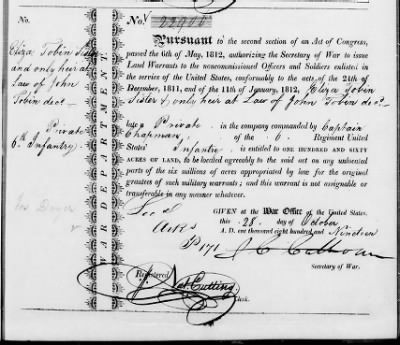 No.
Eliza Tobin Sister
and only heir at
Law of John
Tobin decd.
Private
6th Infantry)
WAR DEPARTMENT.
No.
Pursuant to the second section of an Act of Congress,
passed the 6th of May, 1812, authorizing the Secretary of War to issue
Land Warrants to the noncommissioned Officers and Soldiers enlisted in
the service of the United States, conformably to the acts of the 24th of
December, 1811, and of the 11th of January, 1812, Eliza Tobin
Sister & only heir at Law of John Tobin decd.
late a Private in the company commanded by Captain
Chapman, of the 6 Regiment United
States' Infantry is entitled to ONE HUNDRED AND SIXTY
ACRES OF LAND, to be located agreeably to the said act on any unlocated
parts of the six millions of acres appropriated by law for the original
grantees of such military warrants; and this warrant is not assignable or
transferable in any manner whatever.
GIVEN at the War Office of the United States,
this 28 day of October
A. D. one thousand eight hundred and Nineteen
P 171
J C Calhoun
Secretary of War.
Registered
Cutting
Clerk.